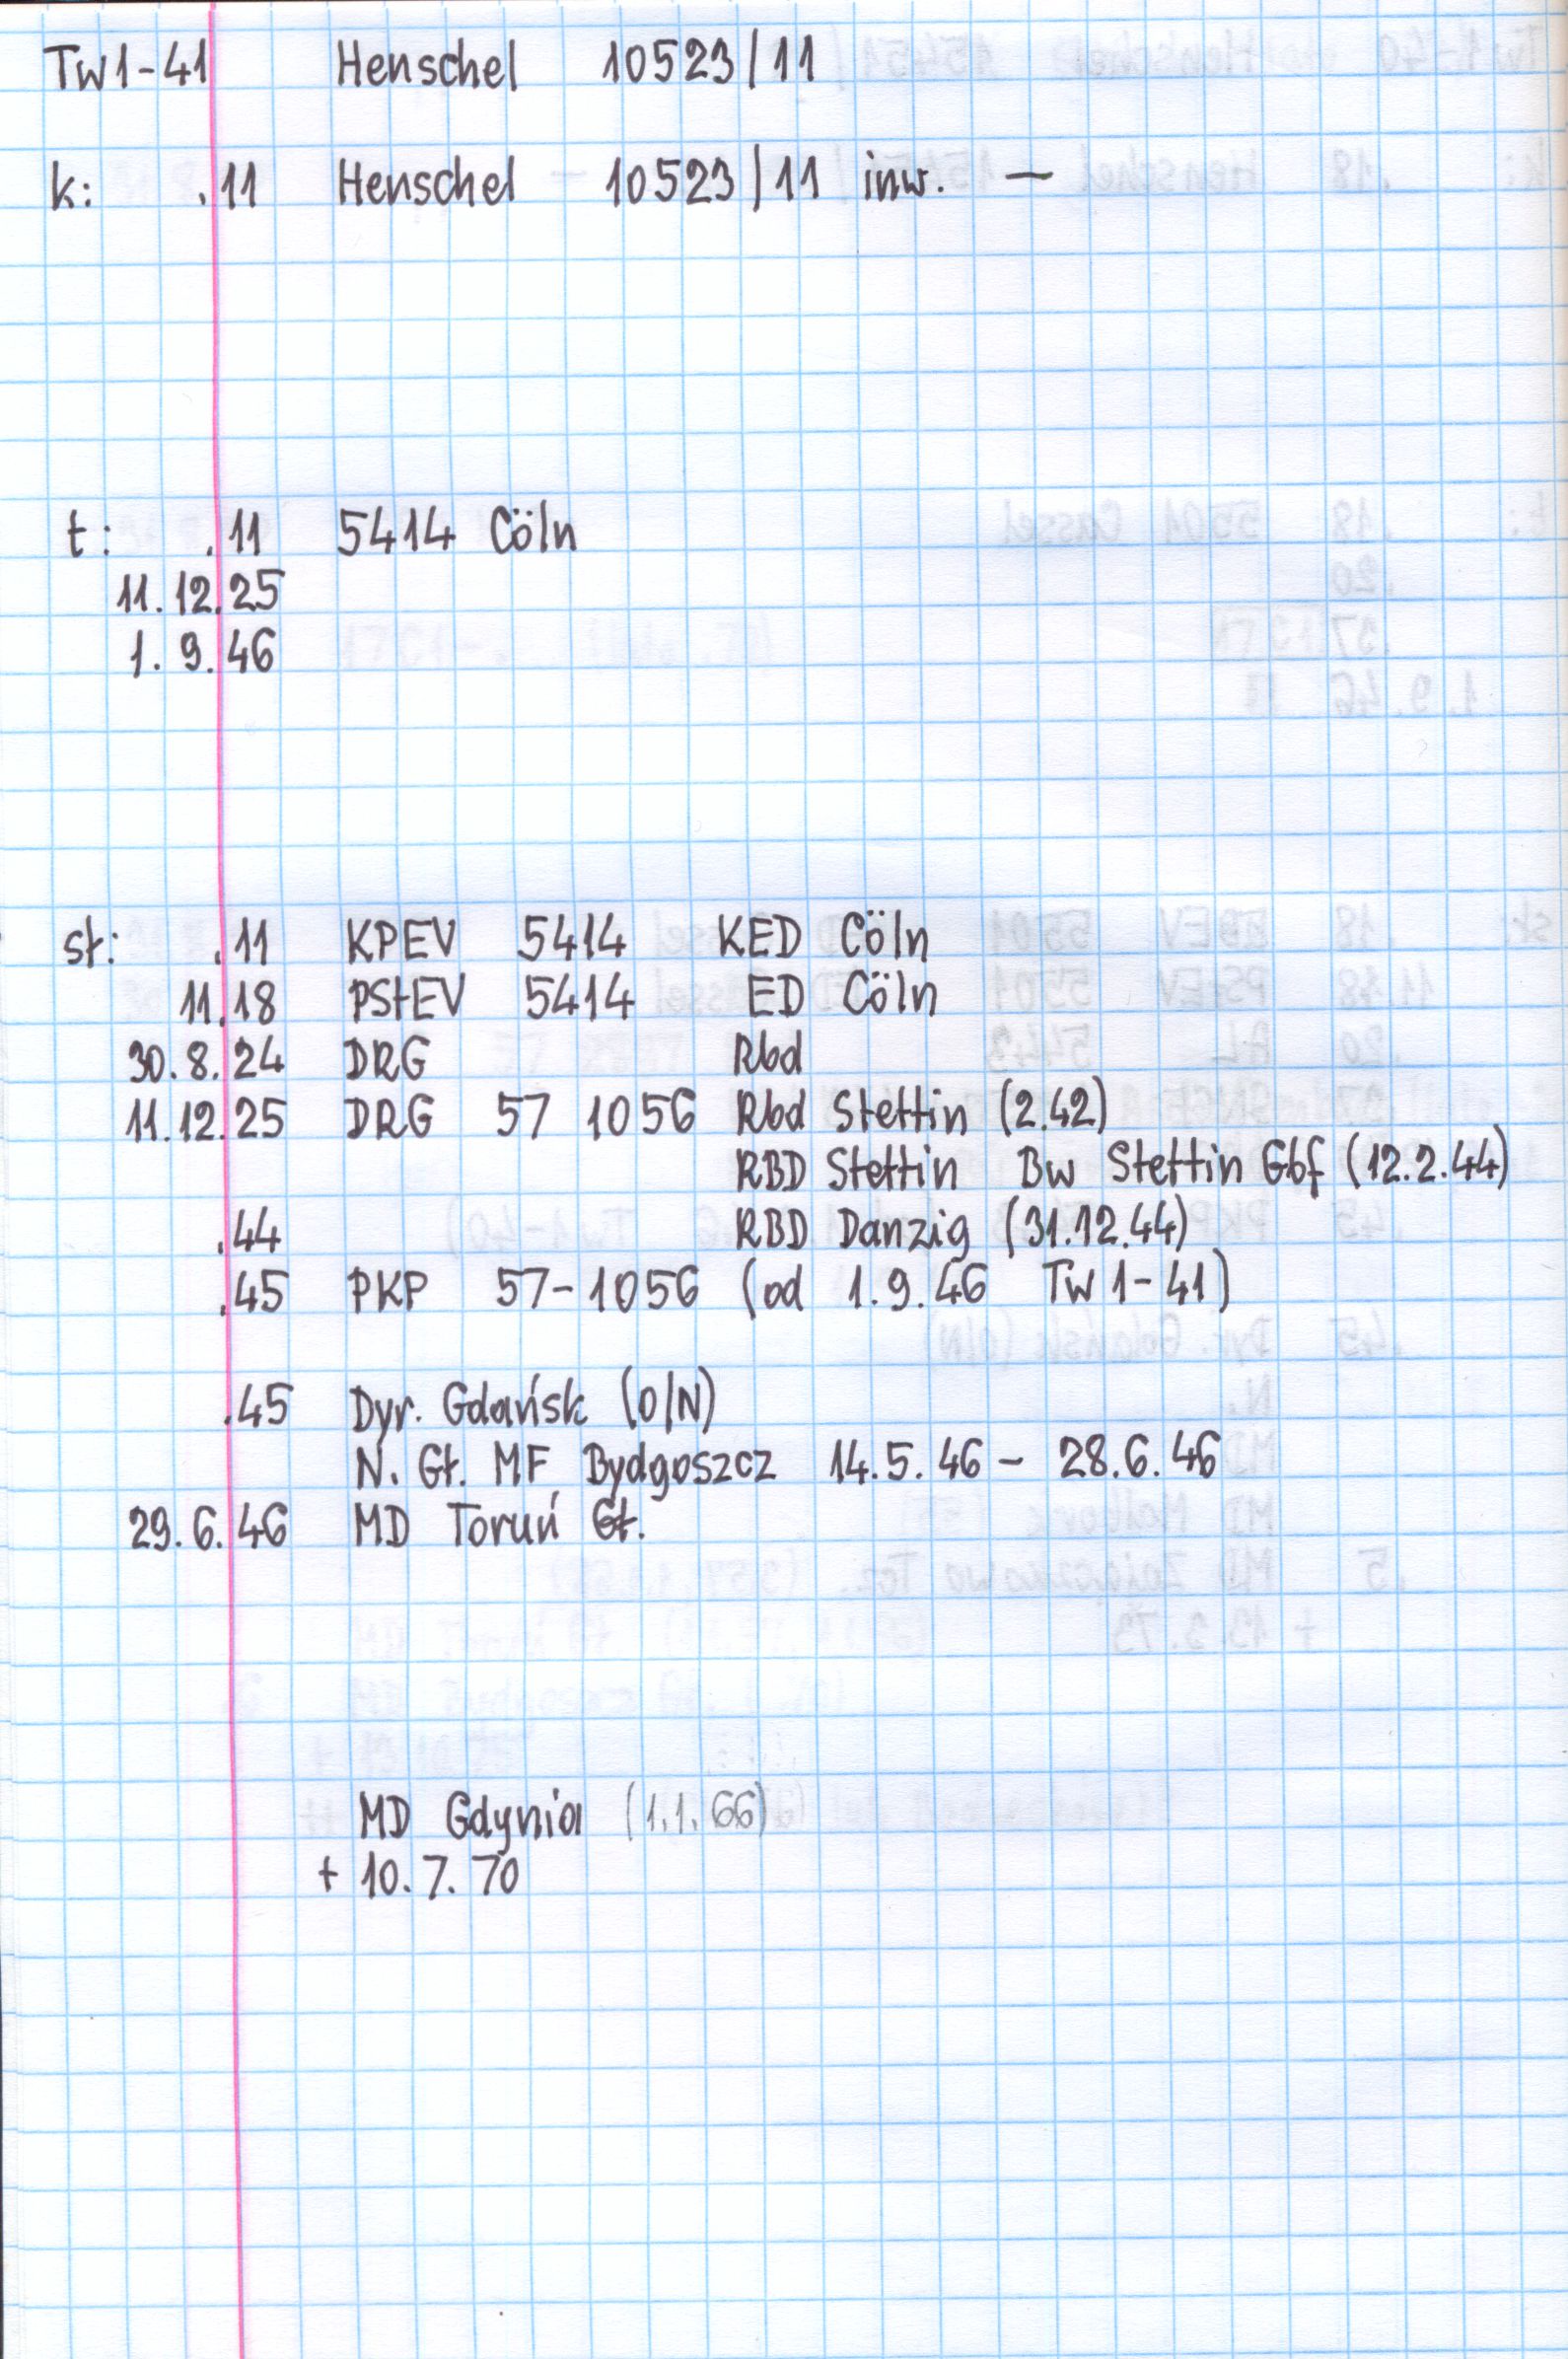 Tw1-41 Henschel 10523/11
k: .11 Henschel 10523/11 inw. —
t: .11 5414 Cöln
11.12.25
1.9.46
st: .11 KPEV 5414 KED Cöln
11.18 PStEV 5414 ED Cöln
30.8.24 DRG Rbd
11.12.25 DRG 57 1056 Rbd Stettin (2.42)
RBD Stettin Bw Stettin Gbf (12.2.44)
.44 RBD Danzig (31.12.44)
.45 PKP 57-1056 (od 1.9.46 Tw1-41)
.45 Dyr. Gdańsk (O/N)
N. Gł. MF Bydgoszcz 14.5.46 – 28.6.46
29.6.46 MD Toruń Gł.
MD Gdynia (1.1.66)
+ 10.7.70